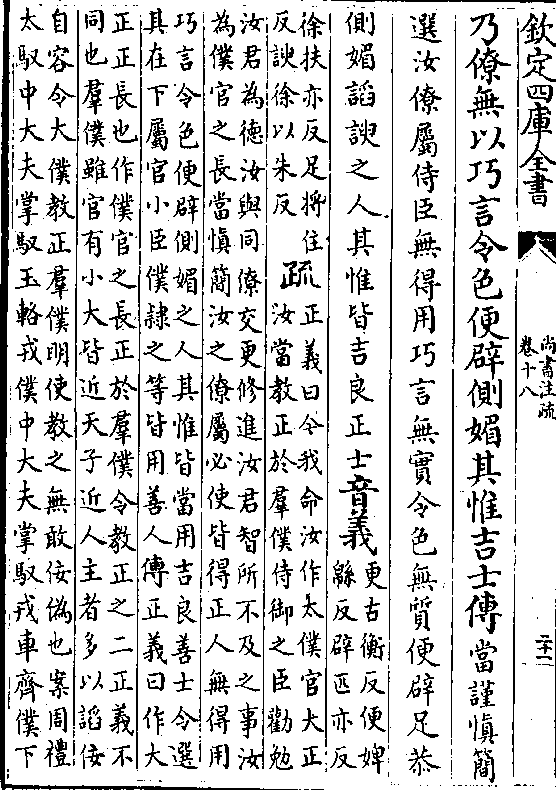 欽定四庫全書
尚書注疏
卷十八
二十二
乃僚無以巧言令色便辟側媚其惟吉士傳當謹慎簡
選汝僚屬侍臣無得用巧言無實令色無質便辟足恭
側媚諂諛之人其惟皆吉良正士音義更古衡反便婢
緜反辟匹亦反
徐扶亦反足將住
反諛徐以朱反
疏正義曰今我命汝作太僕官大正
汝當教正於羣僕侍御之臣勸勉
汝君為德汝與同僚交更修進汝君智所不及之事汝
為僕官之長當慎簡汝之僚屬必使皆得正人無得用
巧言令色便辟側媚之人其惟皆當用吉良善士令選
其在下屬官小臣僕隸之等皆用善人傳正義曰作大
正正長也作僕官之長正於羣僕令教正之二正義不
同也羣僕雖官有小大皆近天子近人主者多以諂佞
自容令大僕教正羣僕明使教之無敢佞偽也案周禮
太馭中大夫掌馭玉輅戎僕中大夫掌馭戎車齊僕下